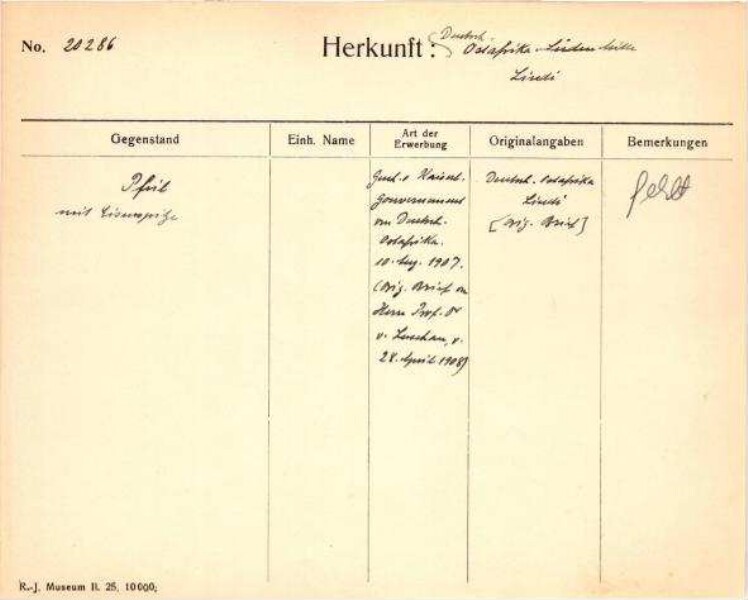 No. 20286
Herkunft : Deutsch. Ostafrika. Süden Mitte
Lindi
Gegenstand
Einh. Name
Art der Erwerbung
Originalangaben
Bemerkungen
Pfeil
mit Eisenspitze
Gesch. v. Kaiserl.
Gouvernement
von Deutsch.
Ostafrika.
10. Aug. 1907.
(Orig. Brief von
Herrn Prof. Dr
v. Luschan, v.
28. April 1908)
Deutsch. Ostafrika
Lindi
[Orig. Brief]
fehlt
R.-J. Museum B. 25. 10000;